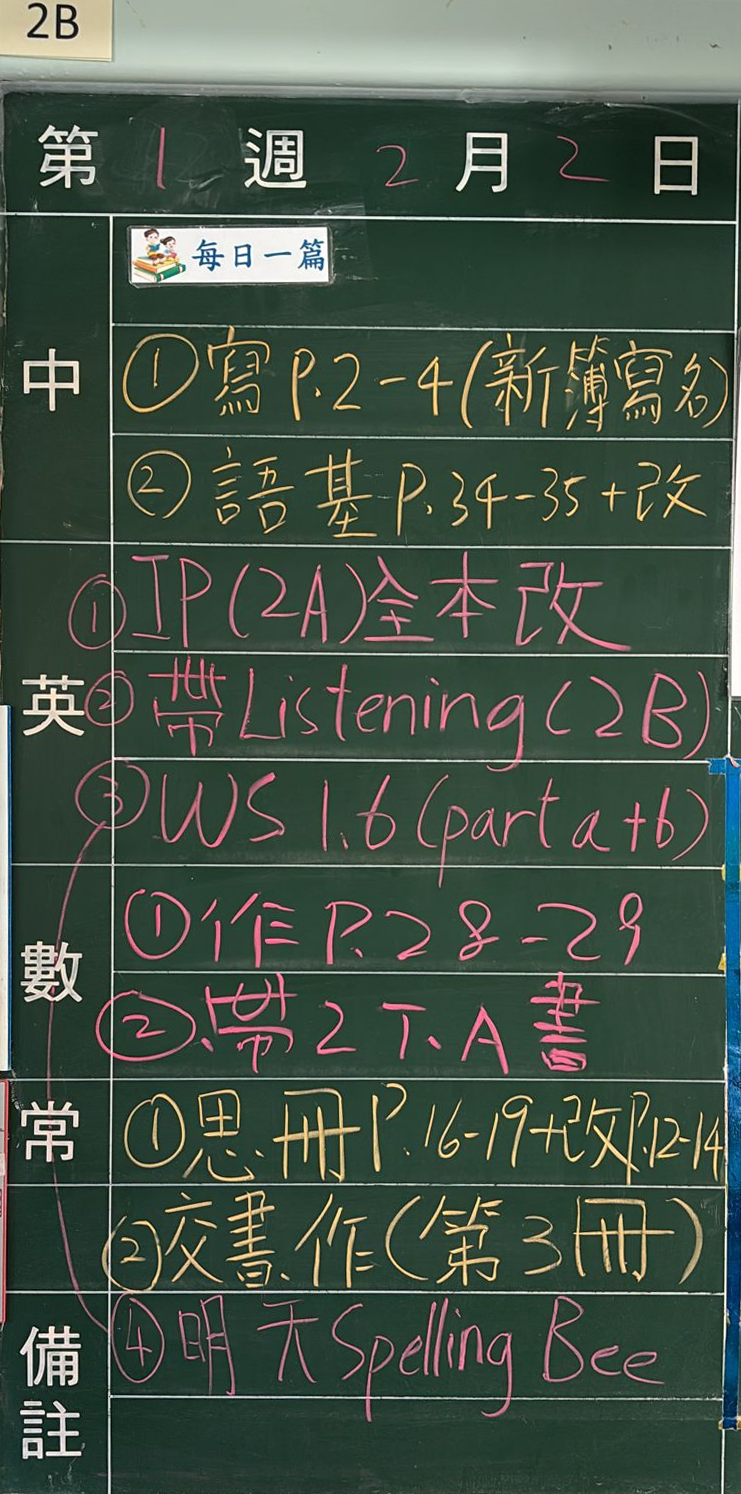 2B
第 1 週 2 月 2 日
每日一篇
中
①寫P.2-4(新簿寫名)
②語基P.34-35+改
英
①IP(2A)全本改
②帶Listening(2B)
③WS 1.6(part a+b)
數
①作P.28-29
②帶2下A書
常
①思.冊P.16-19+改P.12-14
②交書.作(第3冊)
備註
④明天Spelling Bee